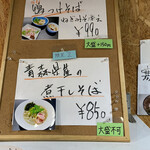 鴨つけそば
¥990
大盛+150円
青森県産の
煮干しそば
¥850
大盛不可